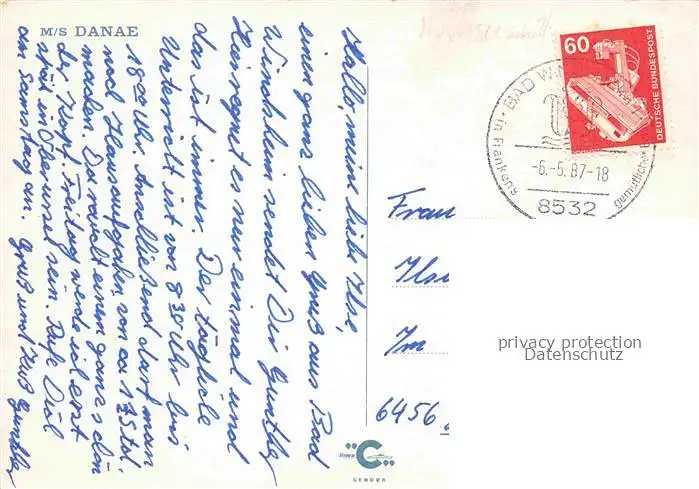 M/S DANAE
Hallo, meine liebe Ilse,
einen ganz lieben Gruß aus Bad
Windsheim sendet Dir Gunther
Hier regnet es nur einmal und
das ist immer. Der tägliche
Unterricht ist von 8 30 Uhr bis
18 00 Uhr. Anschließend darf man
noch Hausaufgaben von ca 1,5 Std.
machen. Da raucht einem ganz schön
der Kopf. Freitag werde ich erst
spät in Oberursel sein. Rufe Dich
am Samstag an. Gruß und Kuß Gunther
60
DEUTSCHE BUNDESPOST
BAD
in Frankens gemütlicher
-6.-5.87-18
8532
Frau
Ilse
Im
6456
privacy protection
Datenschutz
"C"
GENOVA